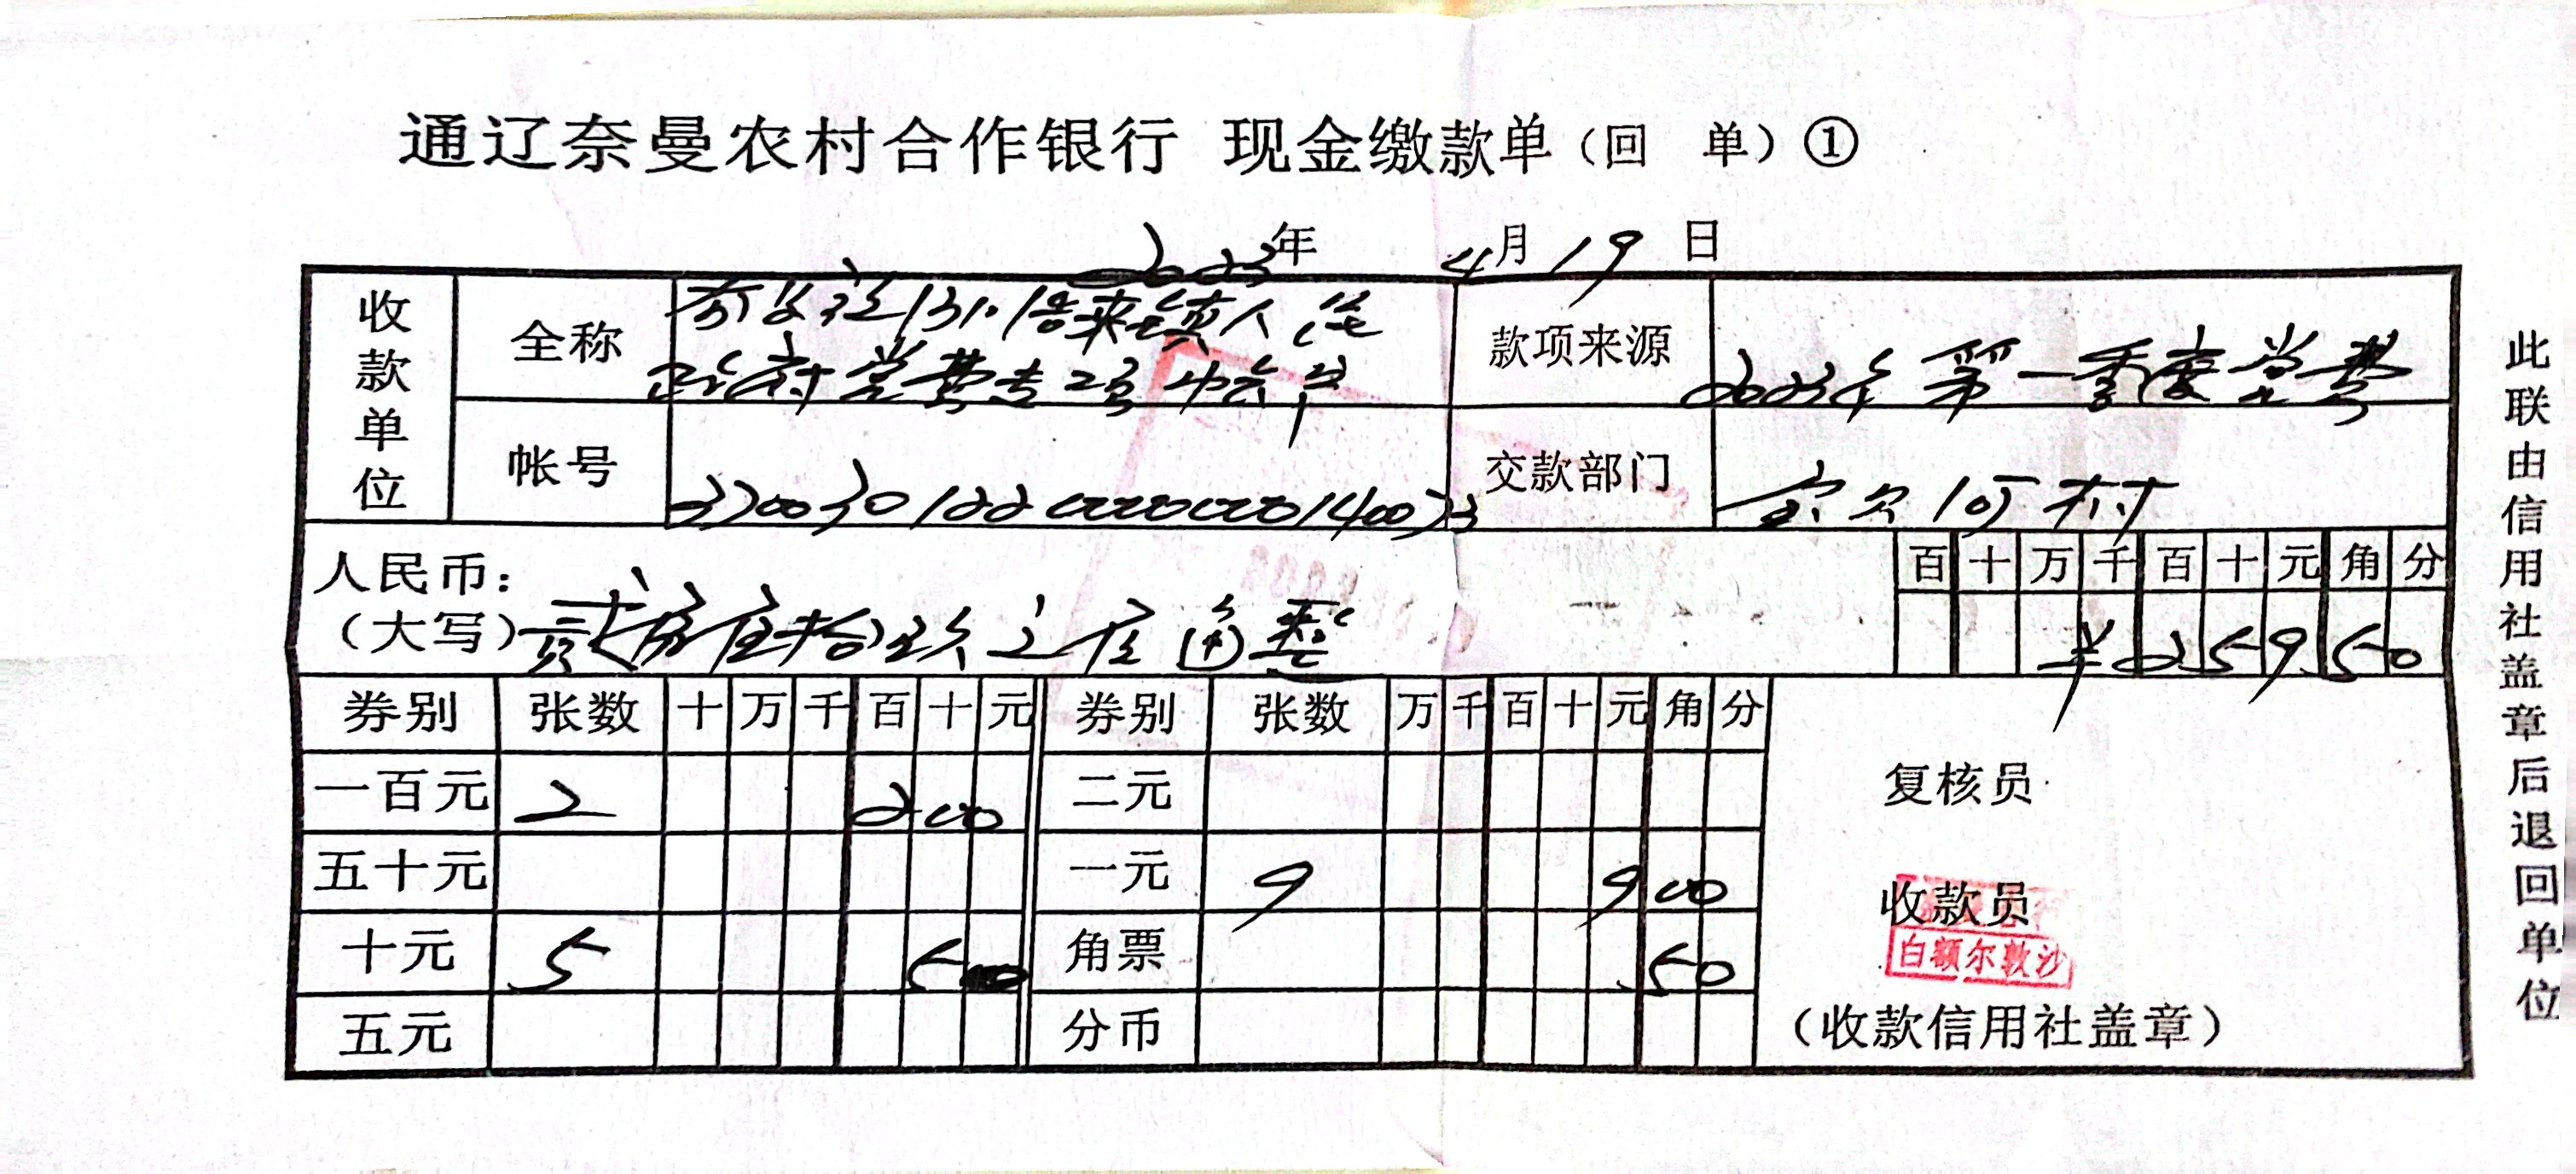 通辽奈曼农村合作银行 现金缴款单（回 单）①
2023年 4月19日
收款单位 全称 人民
政府党费专项 款项来源 2023年第一季度党费
帐号 交款部门 村
人民币：
（大写）贰佰伍拾玖元伍角整
百 十 万 千 百 十 元 角 分
¥ 2 5 9 5 0
券别 张数 十 万 千 百 十 元 券别 张数 万 千 百 十 元 角 分
一百元 2 200 二元
五十元 一元 9 9 00
十元 5 角票 50
五元 分币
复核员
收款员
白额尔敦沙
（收款信用社盖章）
此联由信用社盖章后退回单位